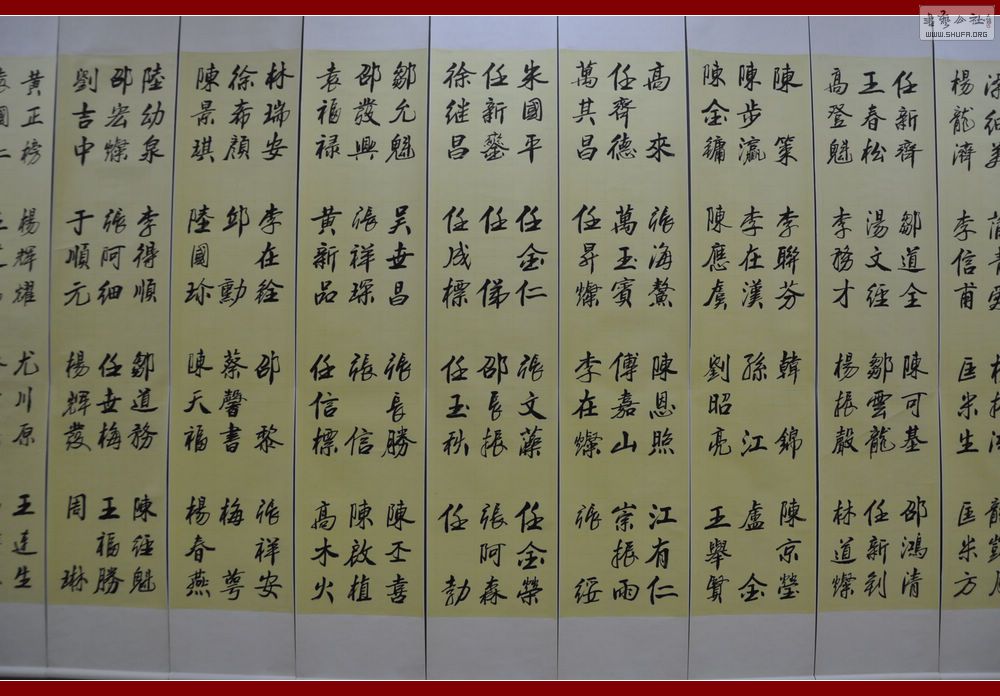 書藝公社
WWW.SHUFA.ORG
楊龍濟 李信甫 匡米生 匡米方
任新齊 鄒道全 陳可基 邵鴻清
王春松 湯文經 鄒雲龍 任新釗
高登魁 李務才 楊振聲 林道燦
陳策 李聯芬 韓錦 陳京瑩
陳步瀛 李在漢 孫江 盧金
陳金鏞 陳應虞 劉昭亮 王舉賢
高來 張海鰲 陳恩照 江有仁
任齊德 萬玉賓 傅嘉山 宗振雨
萬其昌 任昇燦 李在燦 張綏
朱國平 任金仁 張文藻 任金榮
任新鑾 任俤 邵長振 張阿森
徐继昌 任成標 任玉秋 任勃
鄒允魁 吴世昌 張長勝 陳丕喜
邵發興 張祥琛 張信 陳啟植
袁福禄 黃新品 任信標 高木火
林瑞安 李在銓 邵黎 張祥安
徐希顔 邱勳 蔡馨書 梅萼
陳景琪 陸國珍 陳天福 楊春燕
陸幼泉 李得順 鄒道務 陳經魁
邵宏燦 張阿細 任世梅 王福勝
劉吉中 于順元 楊輝發 周琳
黃正榜 楊輝耀 尤川原 王連生